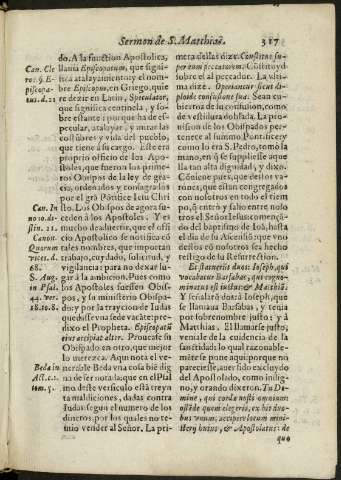 Sermon de S. Matthias. 317
do. A la function Apostolica,
llama Episcopatum, que signi-
fica atalayamiento: y el nom-
bre Episcopus, en Griego, quie
re dezir en Latin, Speculator,
que significa centinela, y so-
bre estante: porque ha de es-
pecular, atalayar, y mirar las
costũbres y vida del pueblo,
que tiene a su cargo. Este era
proprio officio de los Apo-
stoles, que fueron los prime-
ros Obispos de la ley de gra-
cia, ordenados y consagrados
por el grã Põtifice Iesu Chri
sto. Los Obispos de agora su-
ceden à los Apostoles. Y es
mucho de aduertir, que el offi
cio Apostolico se notifica cõ
tales nombres, que importan
trabajo, cuydado, solicitud, y
vigilancia: para no dexar lu-
gar à la ambicion. Pues como
los Apostoles fuessen Obis-
pos, y su ministerio Obispa-
do: y por la traycion de Iudas
quedisse vna sede vacãte: pre-
dixo el Propheta. Episcopatũ
eius accipiat alter. Prouease su
Obispado en otro, que mejor
lo merezca. Aqui nota el ve-
nerable Beda vna cosa biẽ dig
na de ser notada: que en el Psal
mo deste versiculo està treyn
ta maldiciones, dadas contra
Iudas segun el numero de los
dineros, por los quales no te-
mio vender al Señor. La pri-
Can. Cle
ros. 9. E-
piscopa-
tus. d. 21
Can. In
nouo. di-
stin. 21.
Canon.
Quorum
vices. d.
68.
S. Aug.
in Psal.
44. ver.
18. to. 8.
Beda in
Act. c. 1.
tom. 5.
mera dellas dize. Constitue su-
per eum peccatorem. Cõstituyd
sobre el al peccador. La vlti-
ma dize. Operiantur sicut di-
ploide confusione sua. Sean cu-
biertos de su confusion, como
de vestidura doblada. La pro-
uision de los Obispados per-
tenece al summo Pontifice: y
como lo era S. Pedro, tomò la
mano, en q̃ se supliesse aque
lla tan alta dignidad, y dixo.
Cõuiene pues, que destos va-
rones, que estan congregados
con nosotros en todo el tiem
po, q̃ entrò y salio entre noso
tros el Señor Iesus: comẽçã-
do del baptismo de Ioã, hasta
el dia de su Ascensiõ: que vno
destos cõ nosotros sea hecho
testigo de su Resurrection.
Et statuerũt duos: Ioseph, qui
vocabatur Barsabas, qui cogno-
minatus est iustus: & Matthiã.
Y señalarõ dos: à Ioseph, que
se llmaua Barsabas, y tenia
por sobrenombre justo: y à
Matthias. El llamarse justo,
venia le de la euidencia de la
sanctidad: lo qual razonable-
mẽte se pone aqui: porque no
pareciesse, auer sido excluydo
del Apostolado, como indig-
no, y orando dixeron. Tu Do-
mine, qui corda nosti omnium:
ostẽde quem elegeris, ex his duo-
bus vnum, accipere locum mini-
sterij huius, & Apostolatus: de
quo